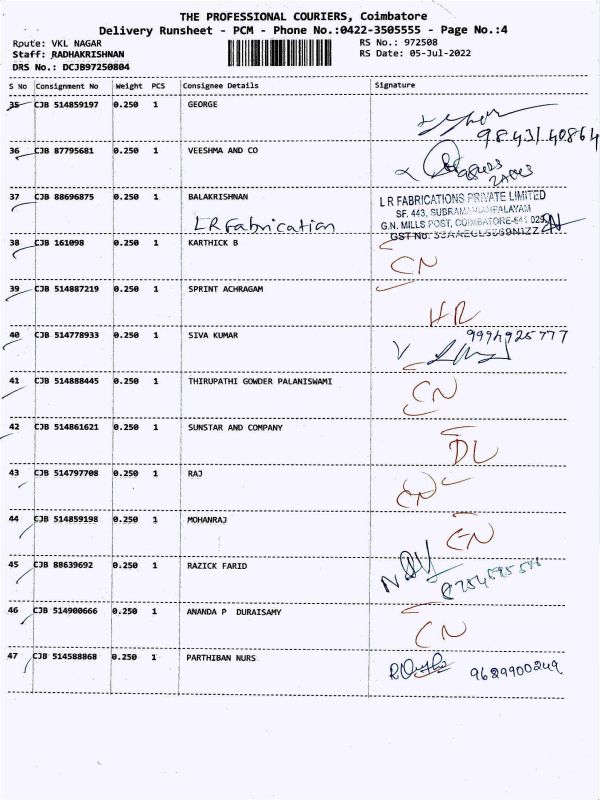 THE PROFESSIONAL COURIERS, Coimbatore
Delivery Runsheet - PCM - Phone No.:0422-3505555 - Page No.:4
Route: VKL NAGAR RS No.: 972508
Staff: RADHAKRISHNAN RS Date: 05-Jul-2022
DRS No.: DCJB97250804
S No Consignment No Weight PCS Consignee Details Signature
35 CJB 514859197 0.250 1 GEORGE
98431 40864
36 CJB 87795681 0.250 1 VEESHMA AND CO
37 CJB 88696875 0.250 1 BALAKRISHNAN
LR Fabrication
L R FABRICATIONS PRIVATE LIMITED
SF. 443, SUBRAMANIAMPALAYAM
G.N. MILLS POST, COIMBATORE-641 029
38 CJB 161098 0.250 1 KARTHICK B
CN
39 CJB 514887219 0.250 1 SPRINT ACHRAGAM
HR
40 CJB 514778933 0.250 1 SIVA KUMAR
9994925777
41 CJB 514888445 0.250 1 THIRUPATHI GOWDER PALANISWAMI
CN
42 CJB 514861621 0.250 1 SUNSTAR AND COMPANY
DL
43 CJB 514797708 0.250 1 RAJ
CN
44 CJB 514859198 0.250 1 MOHANRAJ
CN
45 CJB 88639692 0.250 1 RAZICK FARID
46 CJB 514900666 0.250 1 ANANDA P DURAISAMY
CN
47 CJB 514588868 0.250 1 PARTHIBAN NURS
9629900249